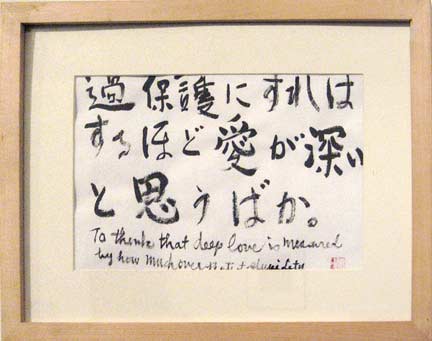 過保護にすれは
するほど愛が深い
と思うばか。
To think that deep love is measured
by how much over